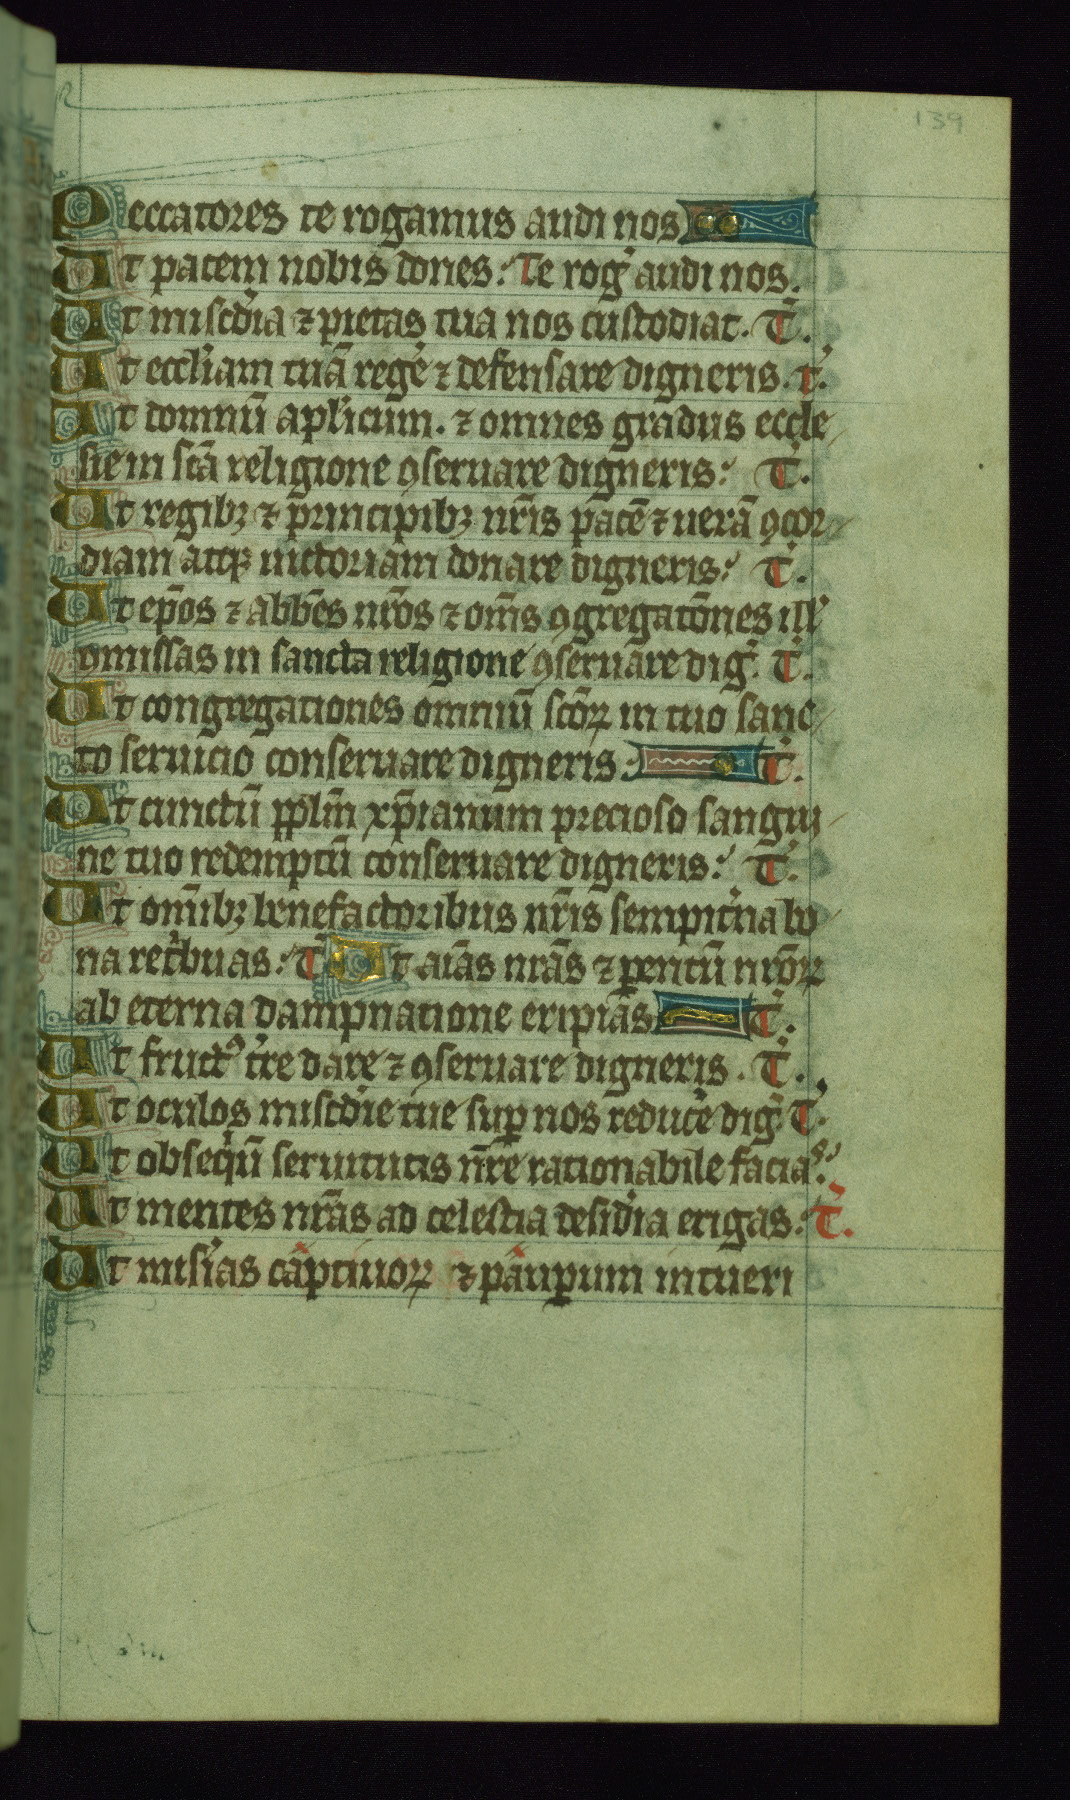 139
Peccatores te rogamus audi nos
Ut pacem nobis dones: Te rog̉ audi nos.
Ut misc̉dia ⁊ pietas tua nos custodiat. T̉.
Ut eccl̉iam tuā regẻ ⁊ defensare digneris. T̉.
Ut domnū apl̉icum. ⁊ omnes gradus eccle
sie in sc̄a religione ꝯseruare digneris: T̉.
Ut regibꝫ ⁊ principibꝫ nr̄is pacē ⁊ uerā ꝯcor
diam atqꝫ uictoriam donare digneris: T̉.
Ut ep̄os ⁊ abb̄es nr̄os ⁊ om̄s ꝯgregatōnes ill̉
omissas in sancta religione ꝯseruare dig̉. T̉.
Ut congregationes omniū sc̄oꝝ in tuo sanc
to seruicio conseruare digneris: T̉.
Ut cunctū pplm̄ xp̄ianum precioso sangui
ne tuo redemptū conseruare digneris: T̉.
Ut om̄ibꝫ benefactoribus nr̄is sempit̉na bo
na ret̉buas: T̉ Ut aīas nr̄as ⁊ ꝑentū nr̄oꝝ
ab eterna dampnatione eripias T̉.
Ut fructꝰ t̉re dare ⁊ ꝯseruare digneris. T̉.
Ut oculos misc̉die tue suꝑ nos reducẻ dig̉. T̉.
Ut obseq̉ū seruitutis nr̄e rationabile faciaˢ:
Ut mentes nr̄as ad celestia desid̉ia erigas: T̉.
Ut misīas captiuoꝝ ⁊ pauꝑum intueri